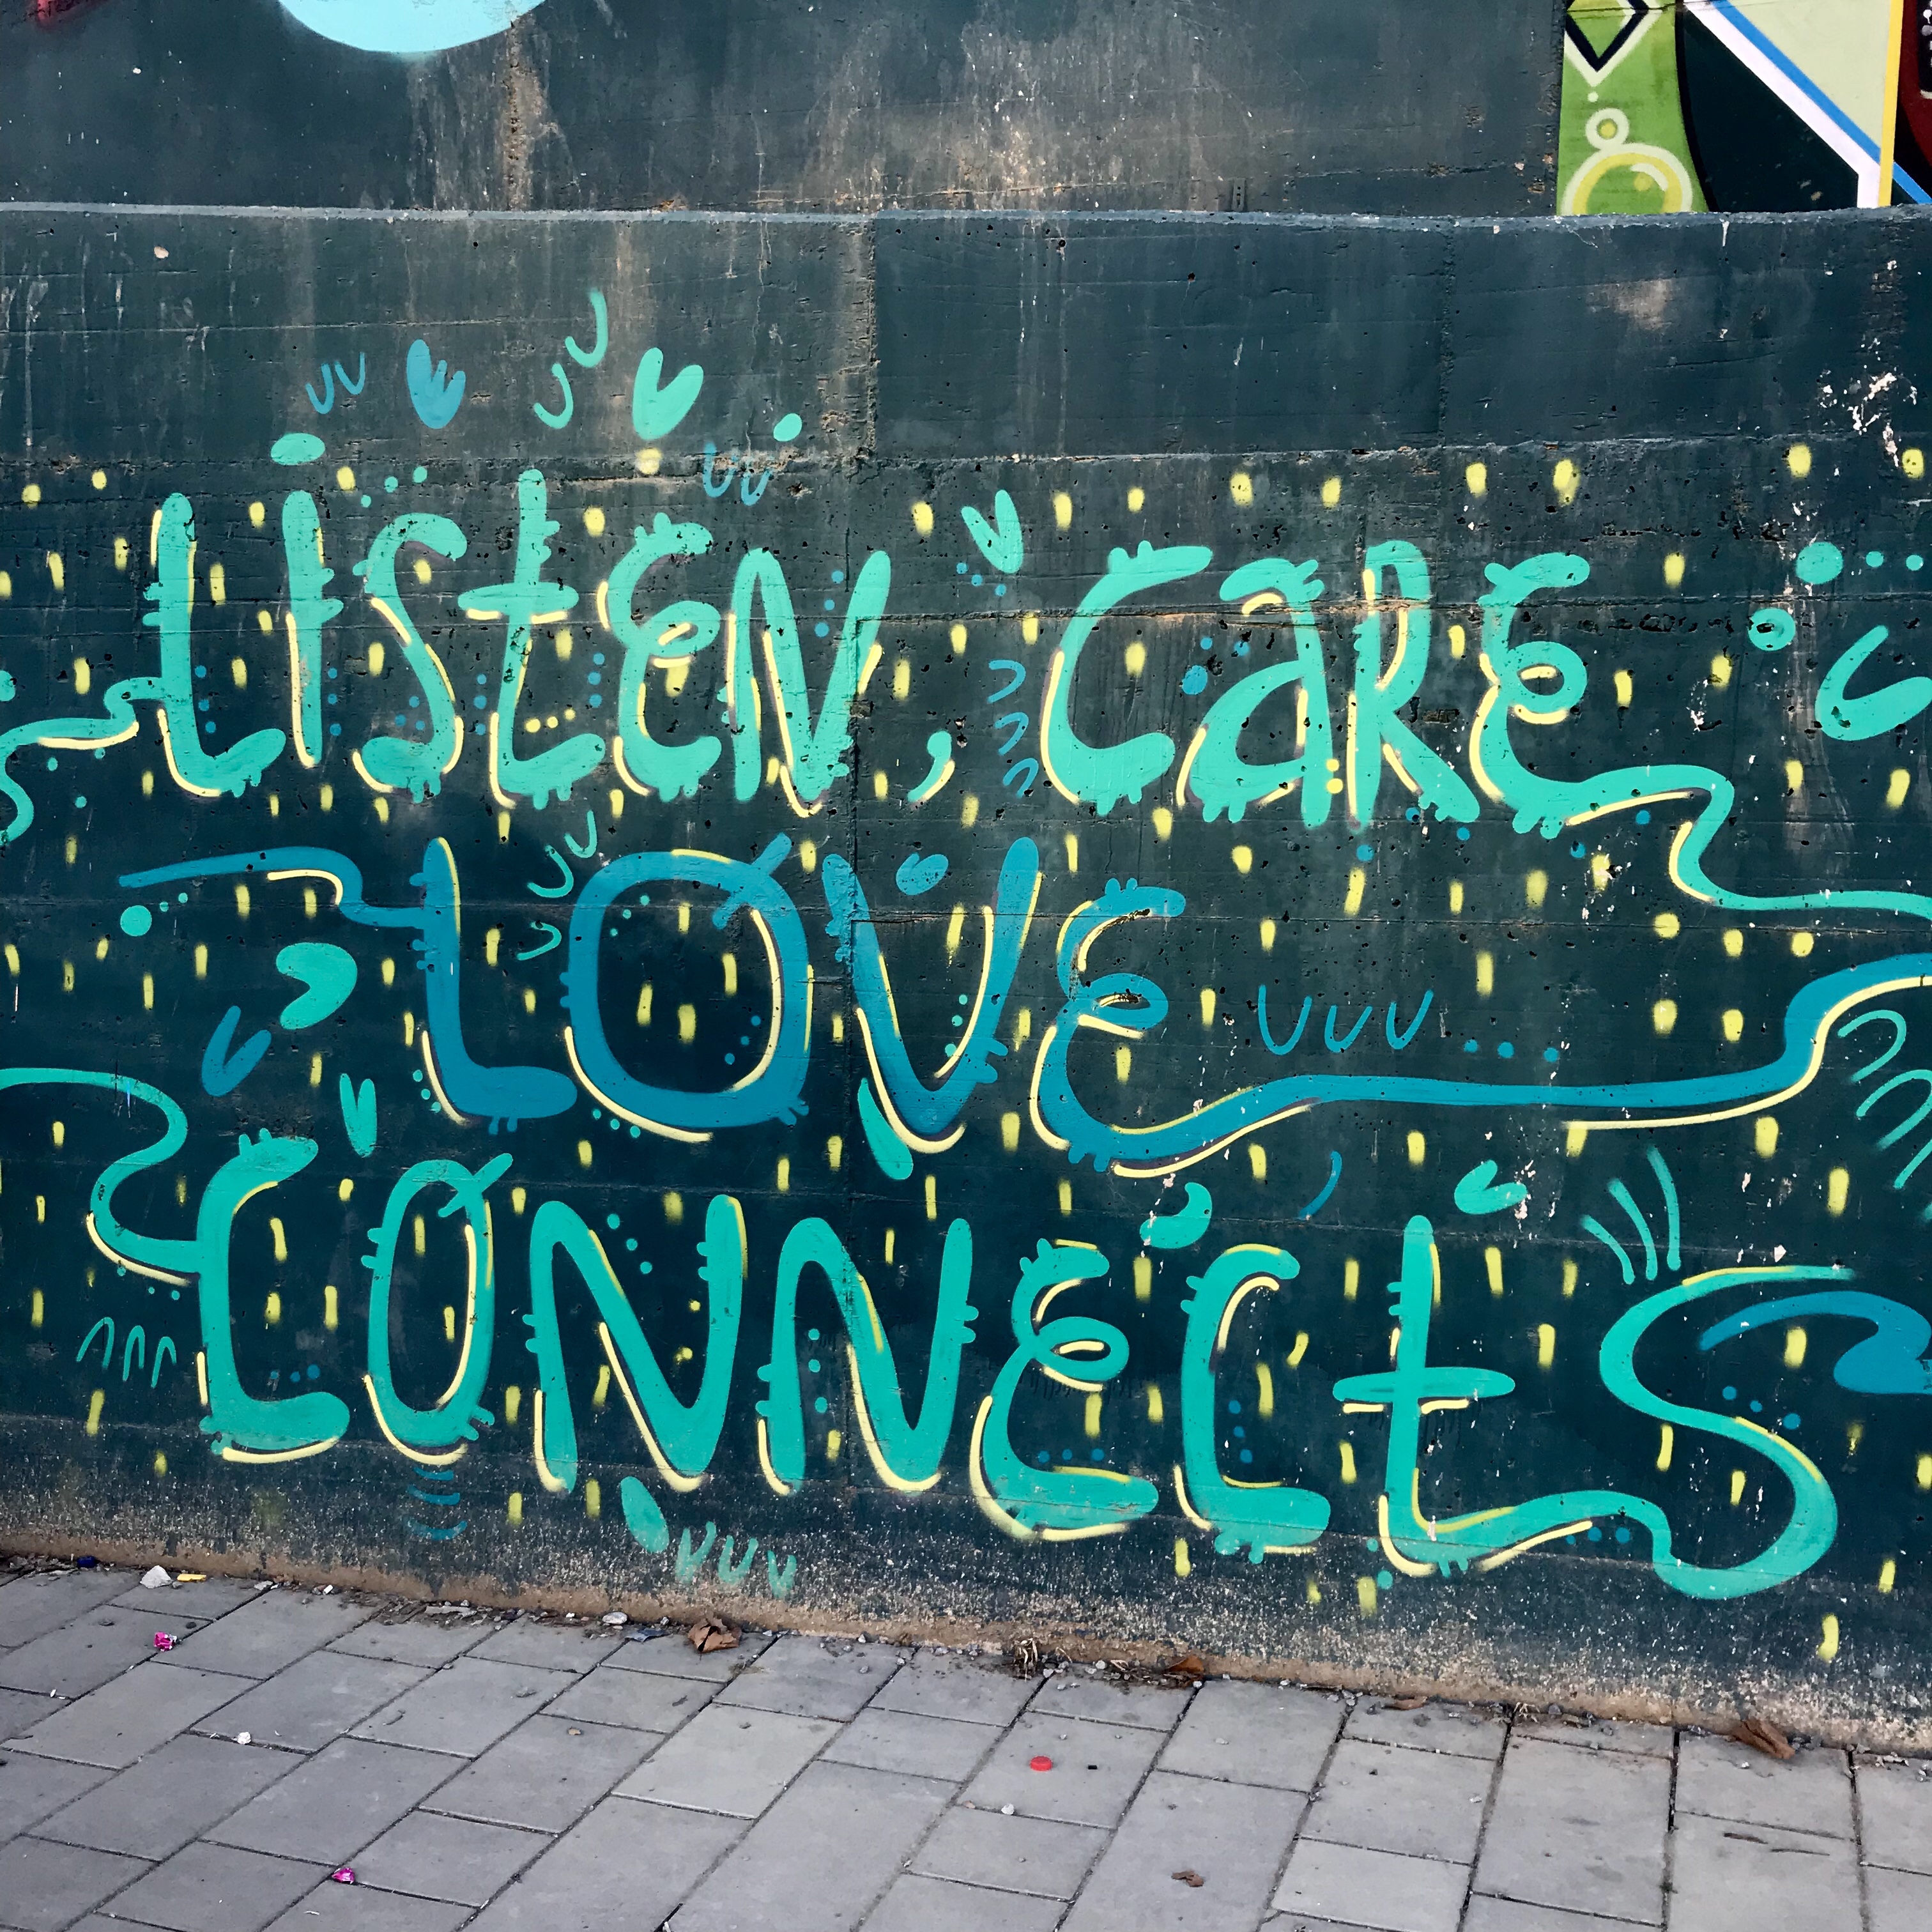 LISTEN, CaRE
LOVE
CONNECtS